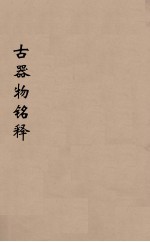 古器物铭释